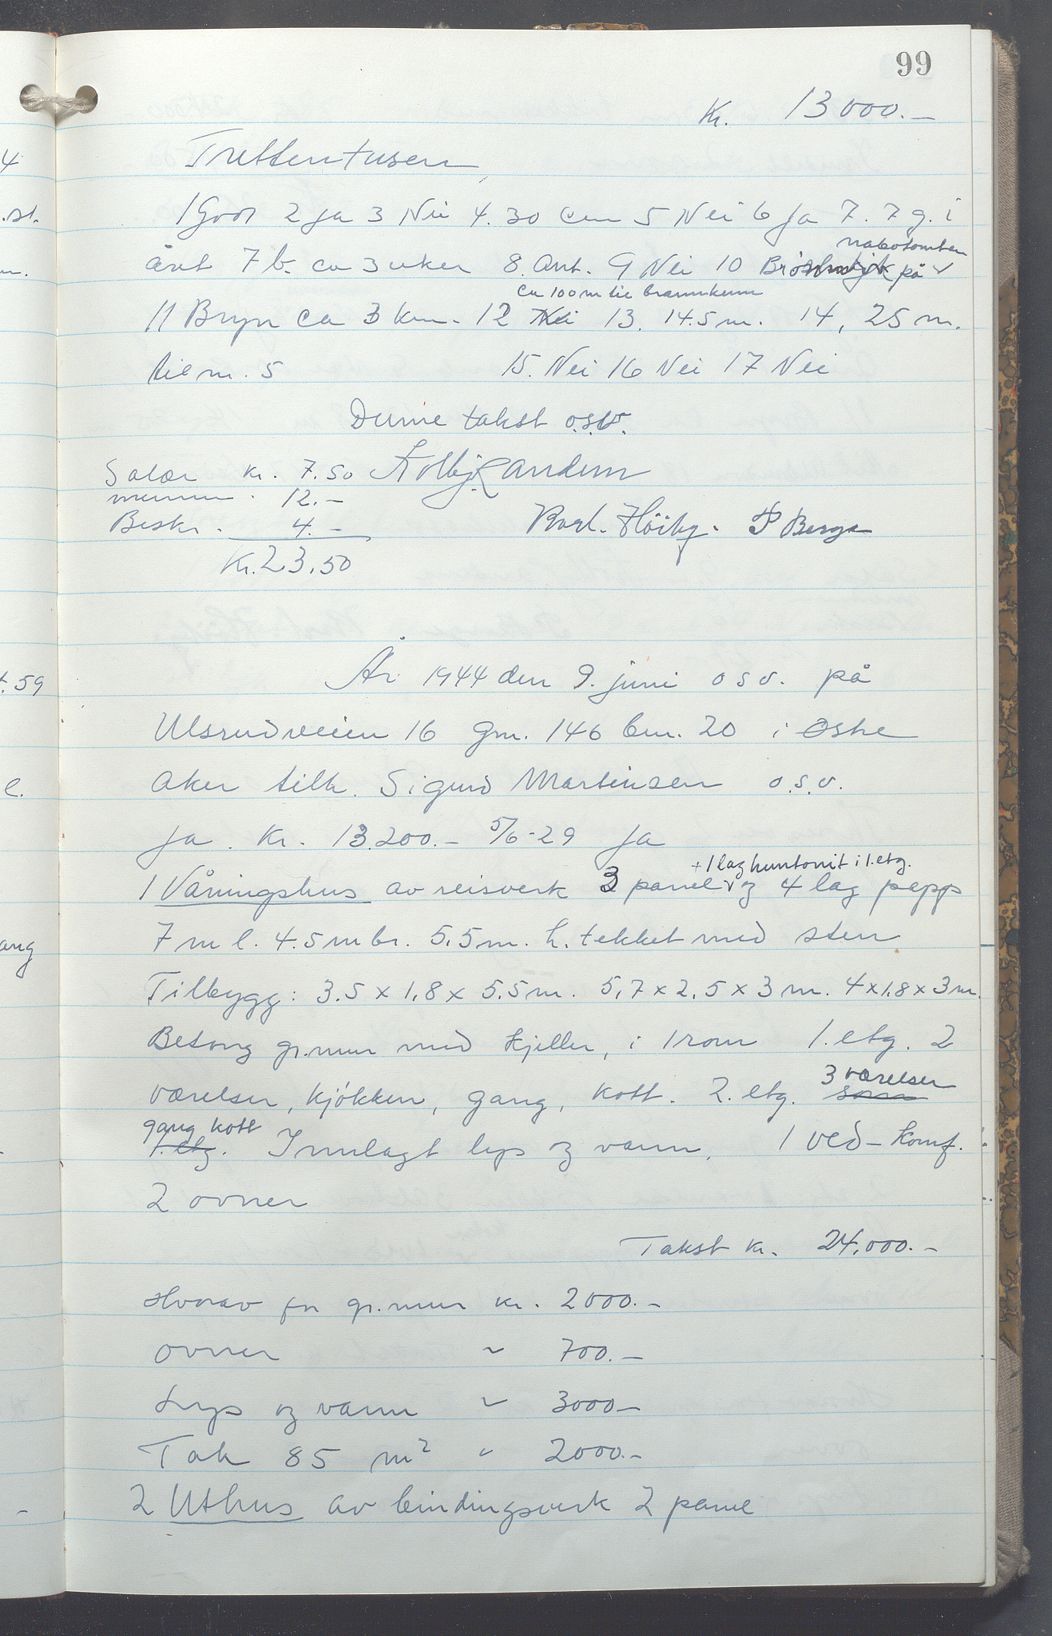 99
Kr. 13000.-
Trettentusen
1 God 2 Ja 3 Nei 4. 30 cm 5 Nei 6 Ja 7. 7 g. i
nabotomten
året 7 b. ca 3 uker 8. Ant. 9 Nei 10 Brønn på
ca 100 m til brannkum
11 Bryn ca 3 km. 12 Nei 13. 14.5 m. 14, 25 m.
til m. 5 15. Nei 16 Nei 17 Nei
Denne takst o.s.v.
Salær kr. 7.50
12.-
Beskr. 4.-
Kr. 23.50
P Berge
År 1944 den 9. juni o s v. på
Ulsrudveien 16 gnr. 146 bnr. 20 i Østre
Aker tilh. Sigurd Martinsen o.s.v.
Ja. Kr. 13.200.- 5/6-29 Ja
+ 1 lag huntonit i 1. etg.
1 Våningshus av reisverk 3 panel og 4 lag papp
7 m l. 4.5 m br. 5,5 m. h. tekket med sten
Tilbygg: 3.5 x 1,8 x 5.5 m. 5,7 x 2,5 x 3 m. 4 x 1,8 x 3 m.
Betong gr.mur med kjeller, i 1 rom 1. etg. 2
3 værelser
værelser, kjøkken, gang, kott. 2. etg. som
gang kott
1. etg. Innlagt lys og vann, 1 ved-komf.
2 ovner
Takst kr. 24.000.-
Hvorav for gr.mur kr. 2000.-
ovner " 700.-
Lys og vann " 3000-
Tak 85 m² " 2000.-
2 Uthus av bindingsverk 2 panel